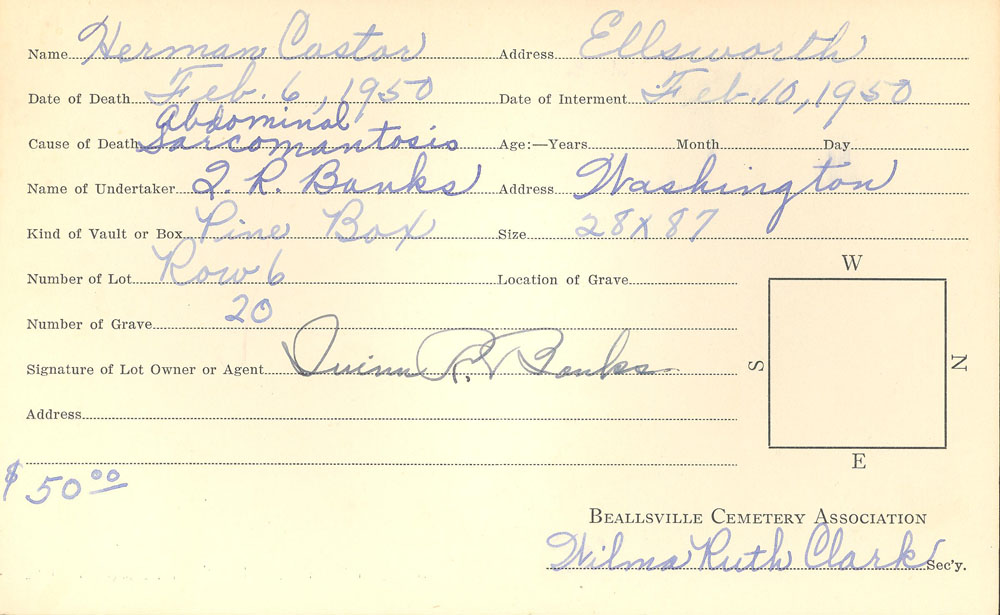 Name Herman Castor Address Ellsworth
Date of Death Feb. 6, 1950 Date of Interment Feb. 10, 1950
Abdominal
Cause of Death Sarcomantosis Age:—Years Month Day
Name of Undertaker Q. R. Banks Address Washington
Kind of Vault or Box Pine Box Size 28 X 87
Number of Lot Row 6 Location of Grave
W
Number of Grave 20
Signature of Lot Owner or Agent Quinn R. Banks
S N
Address
E
$ 50.00
BEALLSVILLE CEMETERY ASSOCIATION
Wilma Ruth Clark Sec'y.